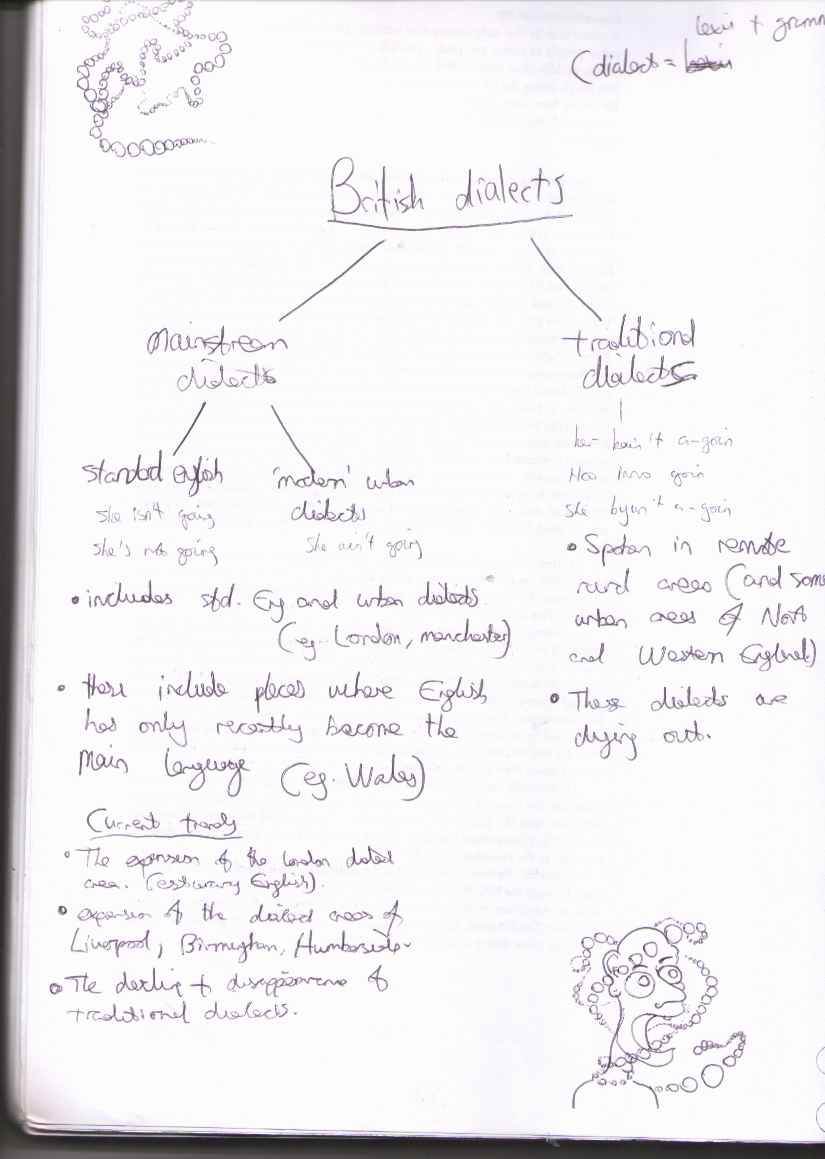 lexis + gramm
(dialect =
British dialects
mainstream
dialects
traditional
dialects
standard english
she isn't going
she's not going
'modern' urban
dialects
she ain't going
her bain't a-goin
Hoo inno goin
she byun't a-goin
• includes std. Eng and urban dialects
(eg. London, manchester)
• these include places where English
has only recently become the
main language (eg. Wales)
• Spoken in remote
rural areas (and some
urban areas of North
and Western England)
• These dialects are
dying out.
Current trends
• The expansion of the London dialect
area. (estuary English).
• expansion of the dialect areas of
Liverpool, Birmingham, Humberside.
• The decline + disappearance of
traditional dialects.